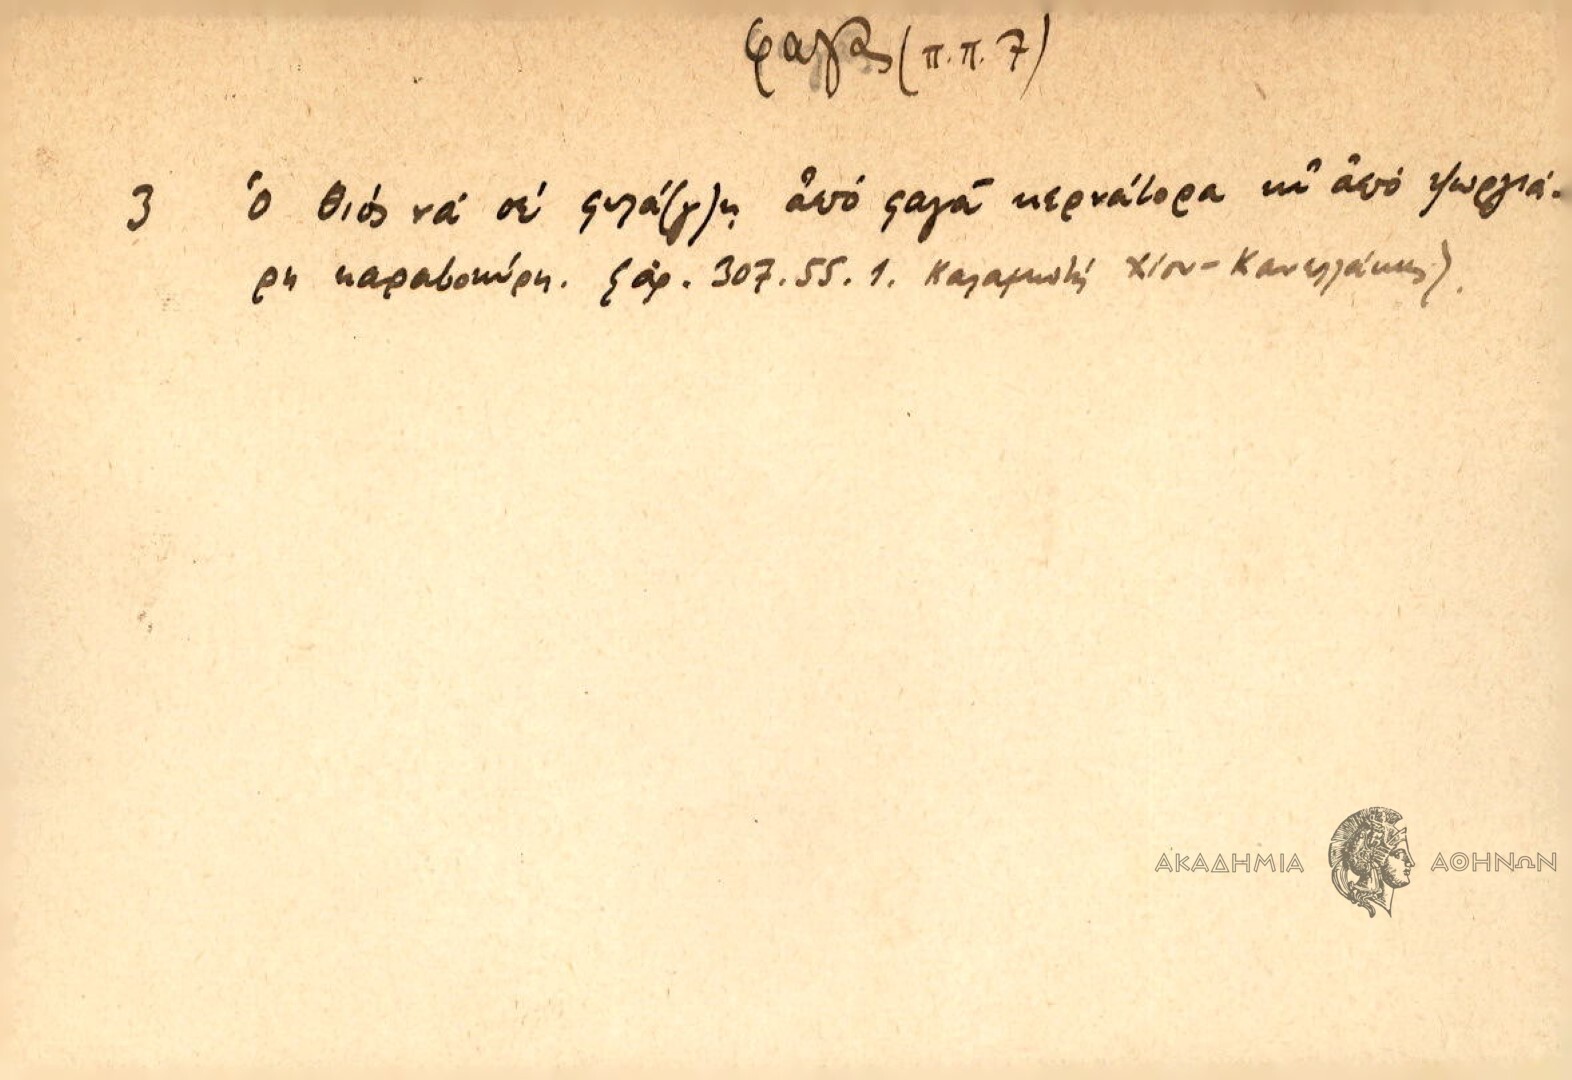 φαγᾶς (π.π. 7)
3 Ὁ Θιός νά σέ φυλά(γ)ῃ ἀπό φαγᾶ κερνάτορα κι ἀπό ψωργιά-
ρη καραβοκύρη. (ἀρ. 307.55.1. Καλαμωτή Χίου - Κανελλάκης).
ΑΚΑΔΗΜΙΑ ΑΘΗΝΩΝ